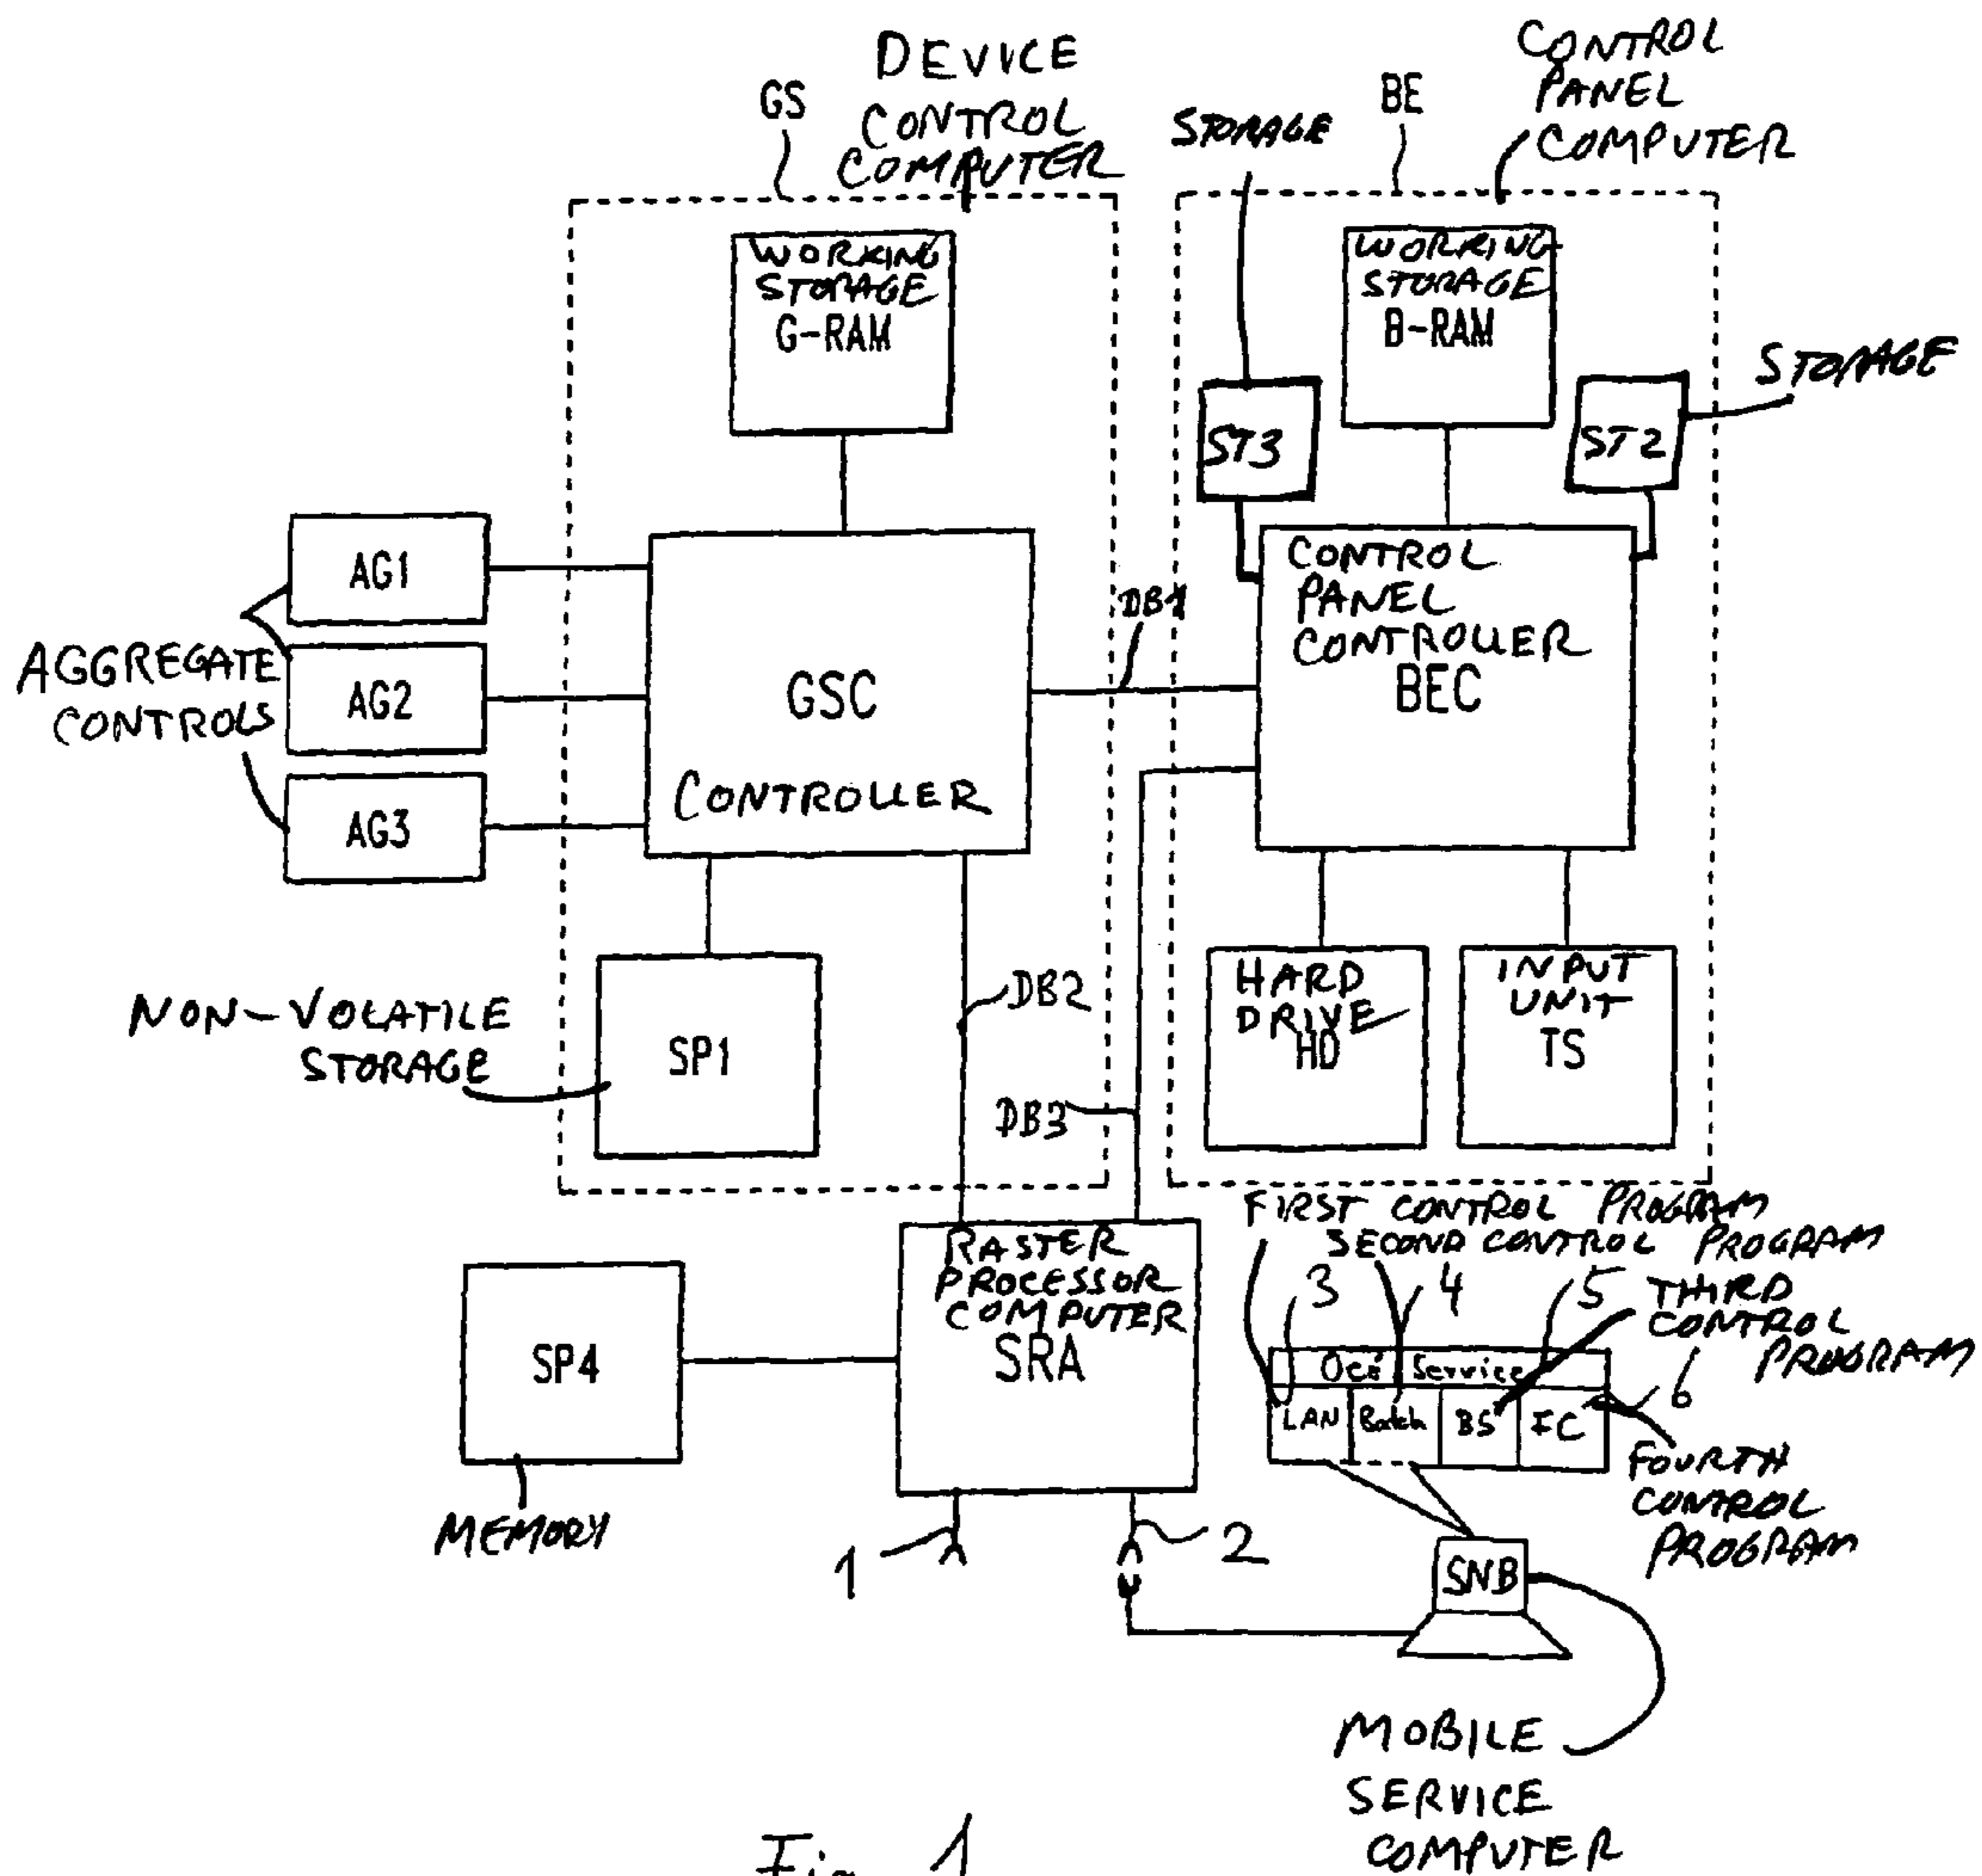 DEVICE
CONTROL
COMPUTER
GS
STORAGE
BE
CONTROL
PANEL
COMPUTER
WORKING
STORAGE
G-RAM
WORKING
STORAGE
B-RAM
STORAGE
ST3
ST2
AG1
AG2
AG3
AGGREGATE
CONTROLS
GSC
CONTROLLER
DB1
CONTROL
PANEL
CONTROLLER
BEC
NON-VOLATILE
STORAGE
SP1
DB2
DB3
HARD
DRIVE
HD
INPUT
UNIT
TS
FIRST CONTROL PROGRAM
SECOND CONTROL PROGRAM
3
4
5
THIRD
CONTROL
PROGRAM
6
RASTER
PROCESSOR
COMPUTER
SRA
SP4
MEMORY
Océ Service
LAN
Batch
BS
IC
FOURTH
CONTROL
PROGRAM
1
2
SNB
MOBILE
SERVICE
COMPUTER
Fig. 1